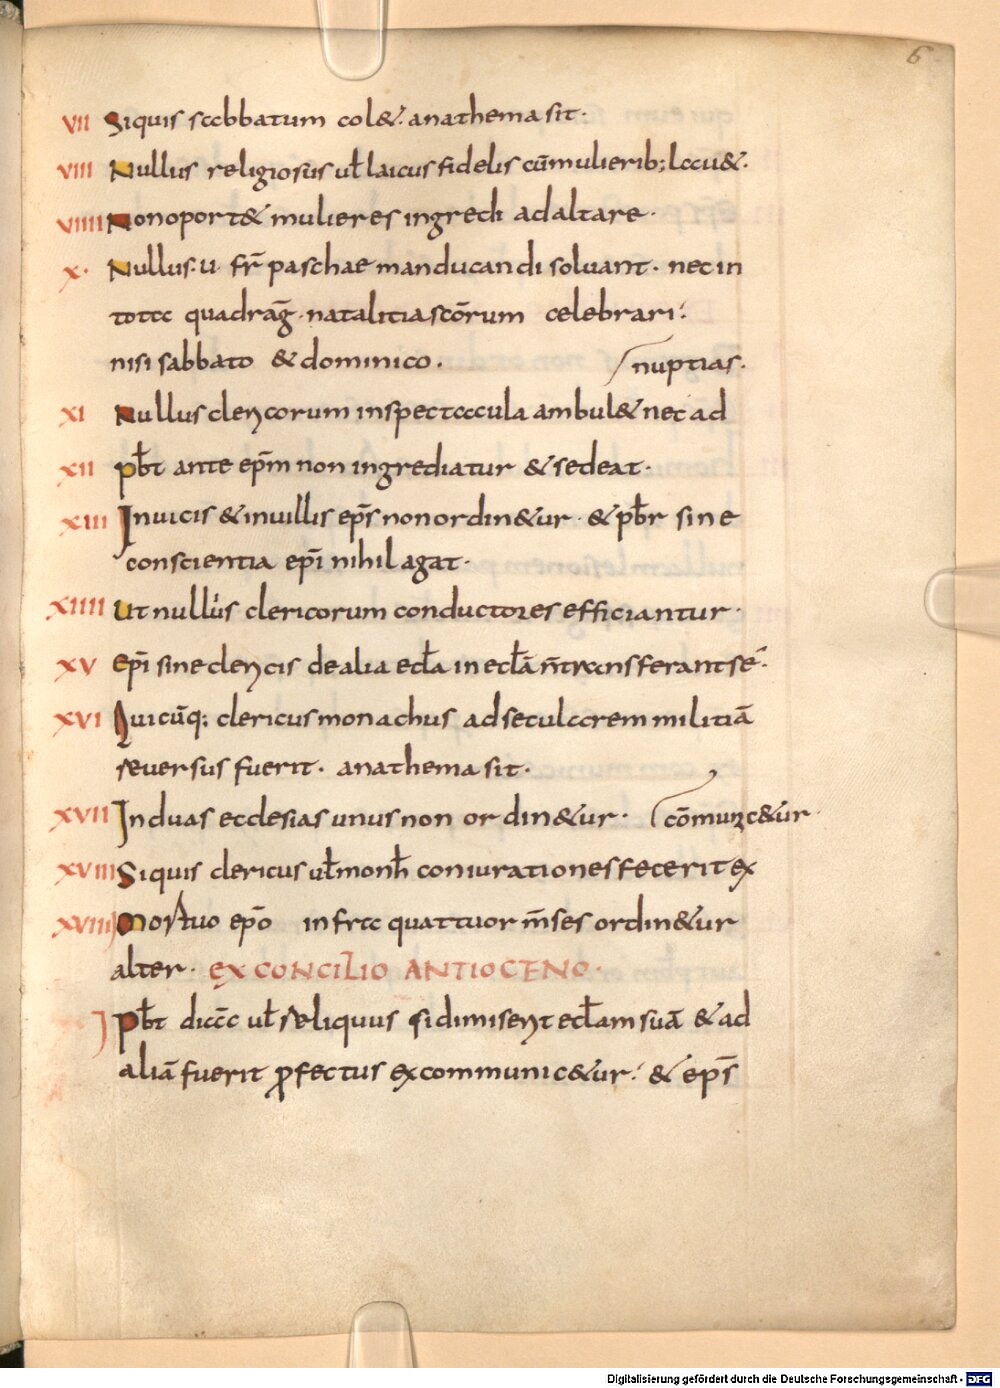 6
VII Siquis sabbatum col&. anathema sit.
VIII Nullus religiosus uł laicus fidelis cū mulierib; locu&.
VIIII Non oport& mulieres ingredi ad altare.
X. Nullus. u. fr̄ paschae manducandi soluant. nec in
tota quadrag̅. natalitia scōrum celebrari.
nisi sabbato & dominico. nuptias.
XI Nullus clericorum inspectacula ambul& nec ad
XII pbt ante ep̅m non ingrediatur & sedeat.
XIII In uicis & in uillis ep̅s non ordin&ur. & pbr sine
conscientia ep̅i nihil agat.
XIIII Ut nullus clericorum conductores efficiantur.
XV Ep̅i sine clericis de alia eccła in eccłā n̄ transferant se.
XVI Quicūq; clericus monachus ad secularem militiā
reuersus fuerit. anathema sit.
XVII In duas ecclesias unus non ordin&ur. cōmunic&ur
XVIII Siquis clericus uł monh̄ coniurationes fecerit ex
XVIIII Mortuo ep̅o infra quattuor m̅ses ordin&ur
alter. EX CONCILIO ANTIOCENO.
I Pbt diac̅ uł reliquus si dimiserit eccłam suā & ad
aliā fuerit ꝓfectus excommunic&ur. & ep̅s
Digitalisierung gefördert durch die Deutsche Forschungsgemeinschaft - DFG